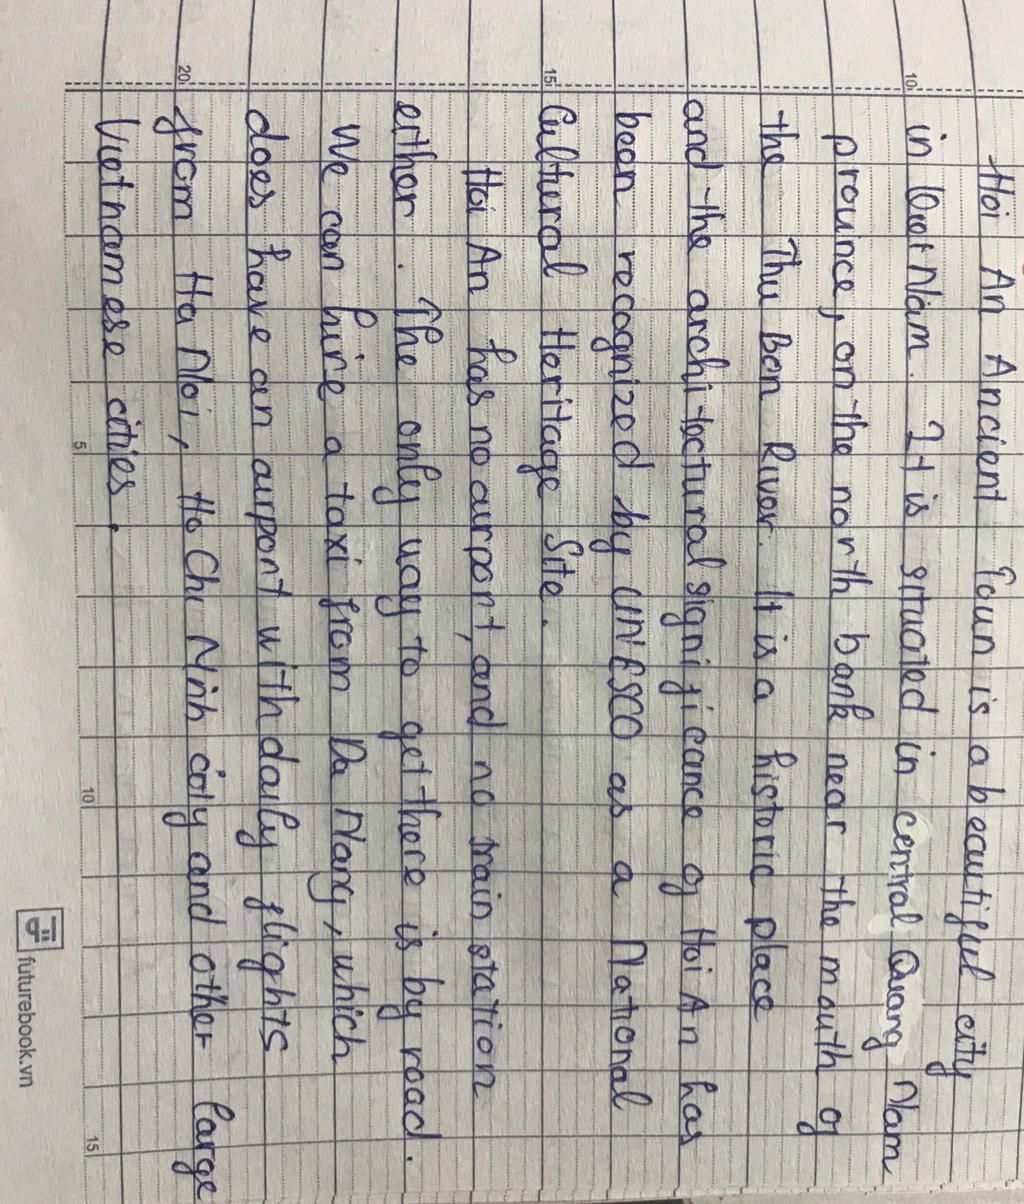 Hoi An Ancient Town is a beautiful city
in Viet Nam. It is situated in central Quang Nam
province, on the north bank near the mouth of
the Thu Bon River. It is a historic place
and the architectural significance of Hoi An has
been recognized by UNESCO as a National
Cultural Heritage Site.
Hoi An has no airport, and no train station
either. The only way to get there is by road.
We can hire a taxi from Da Nang, which
does have an airport with daily flights
from Ha Noi, Ho Chi Minh city and other large
Vietnamese cities.
10
15
20
5
10
15
futurebook.vn